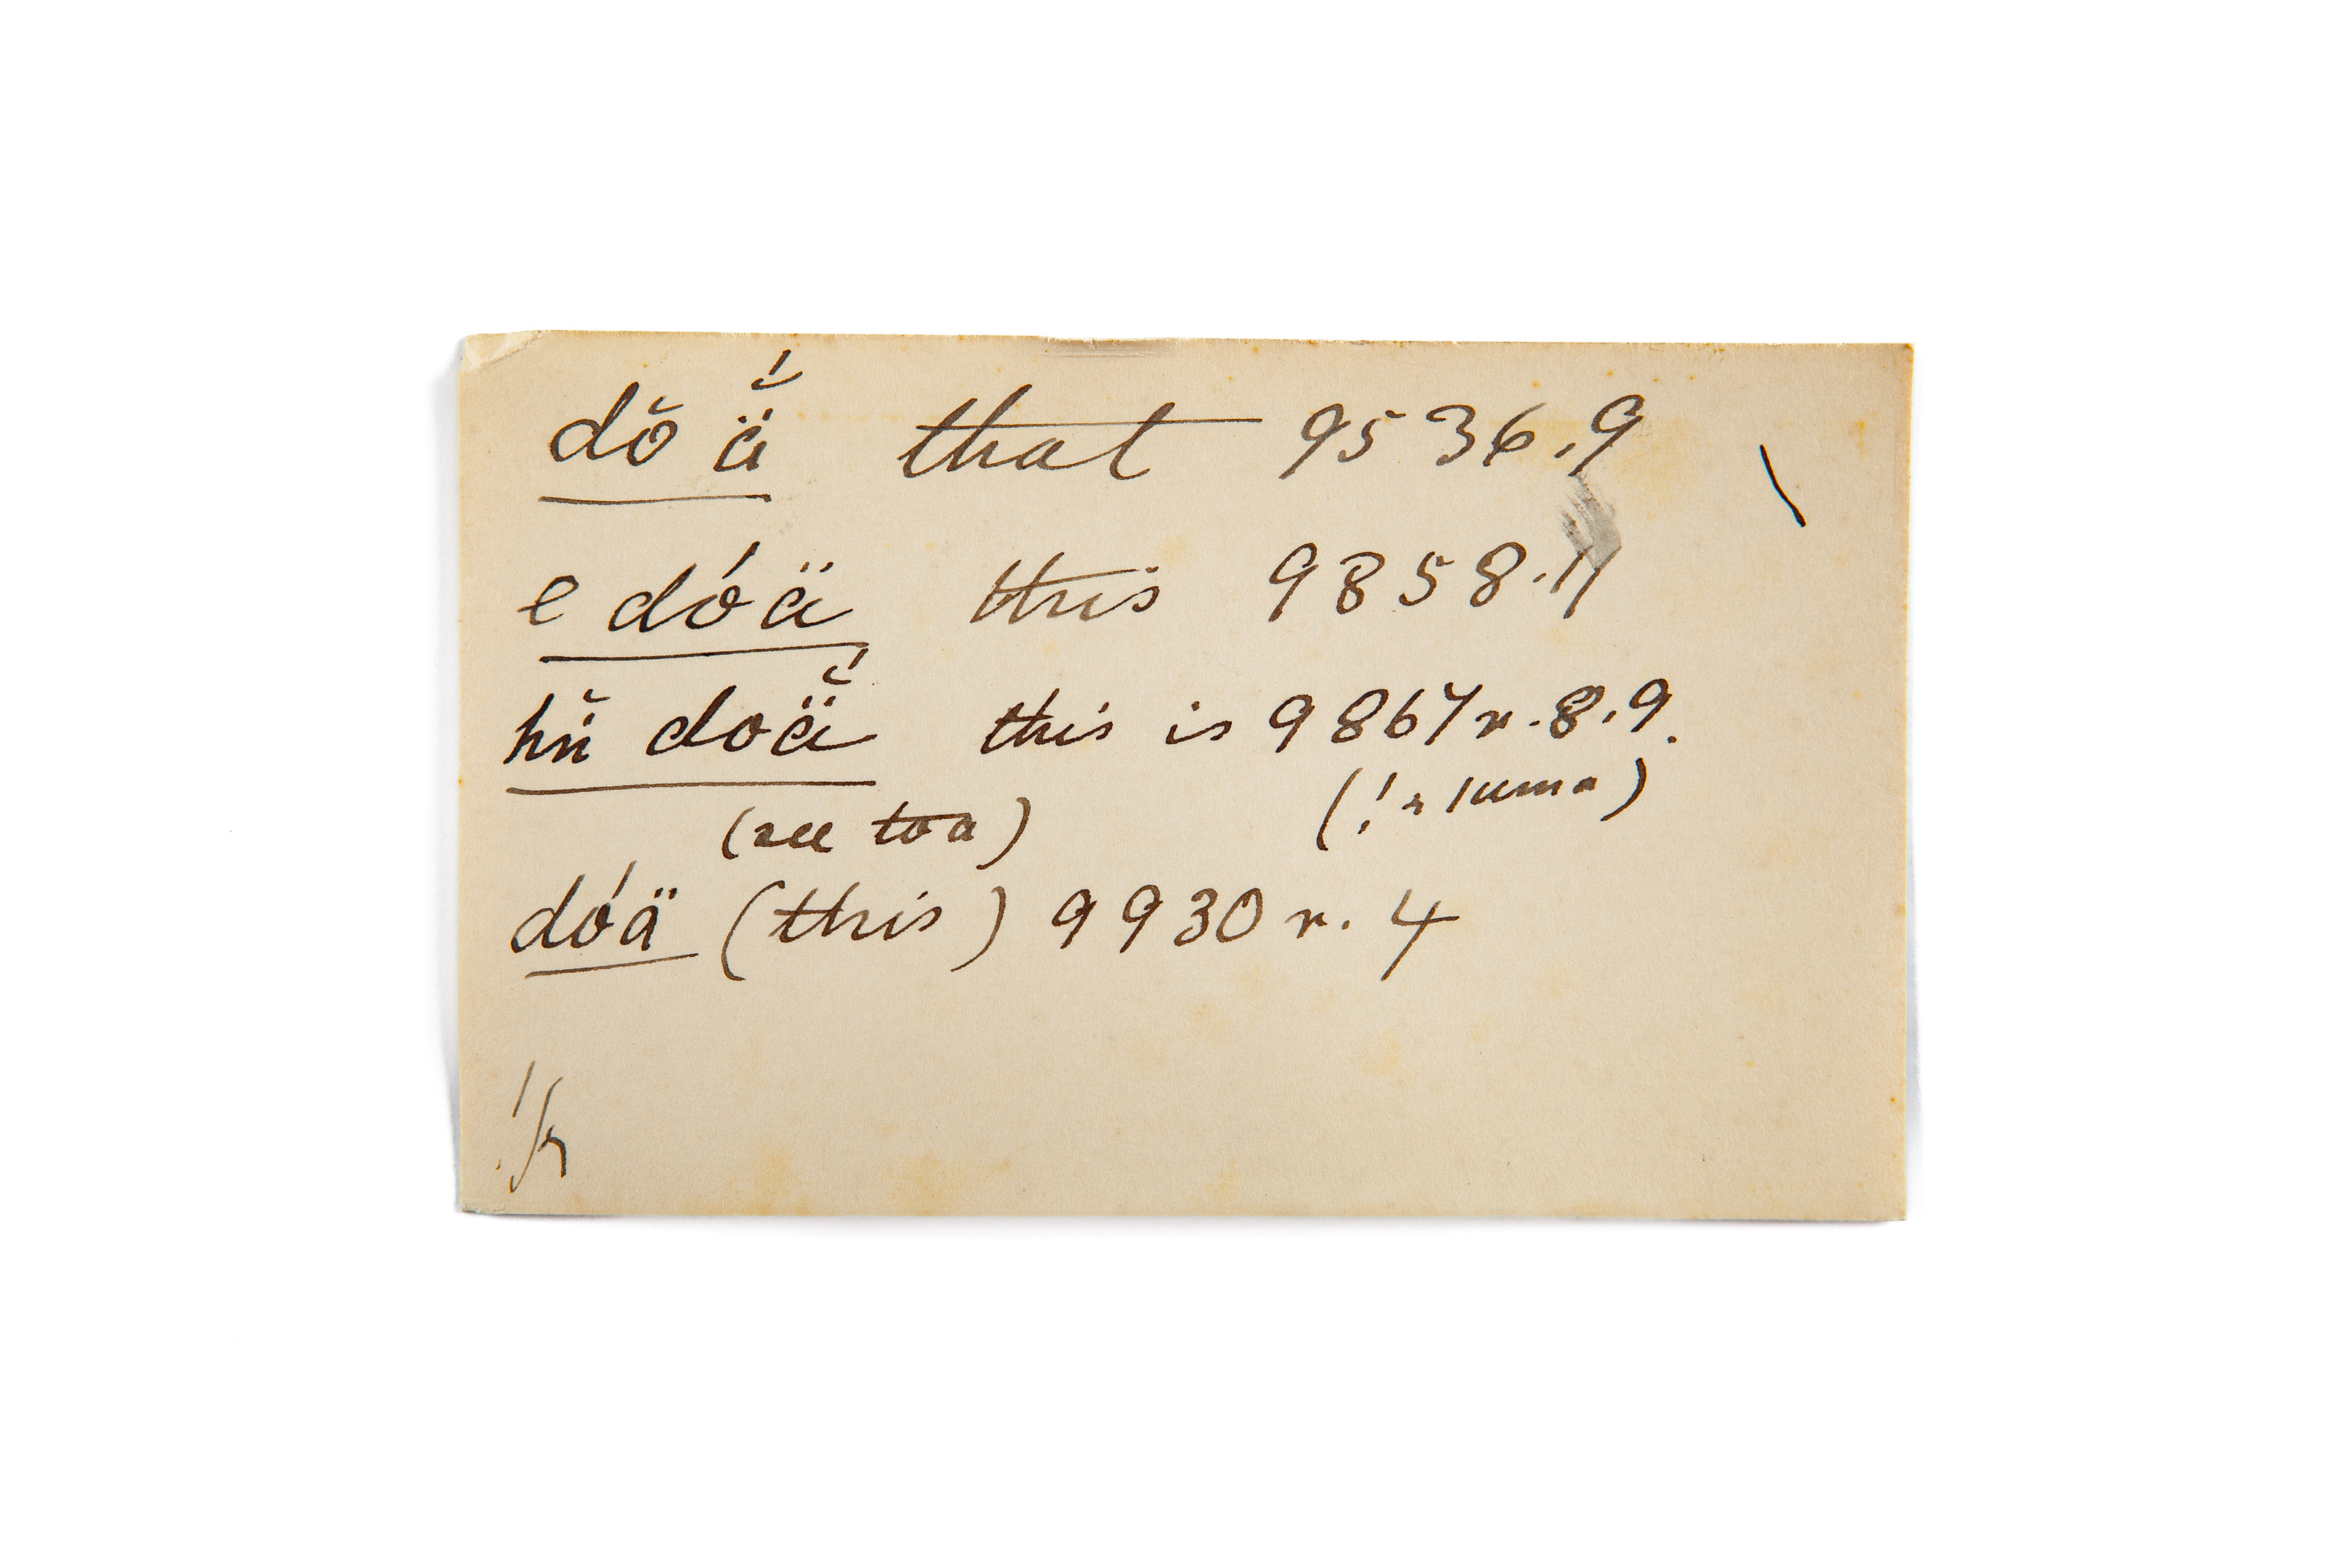 dŏ ä̆́ that 9536.9
e dóä this 9858.11
hü̆ doä̆́ this is 9867r.8.9.
(see toa) (!kuma)
dóä (this) 9930r.4
!k